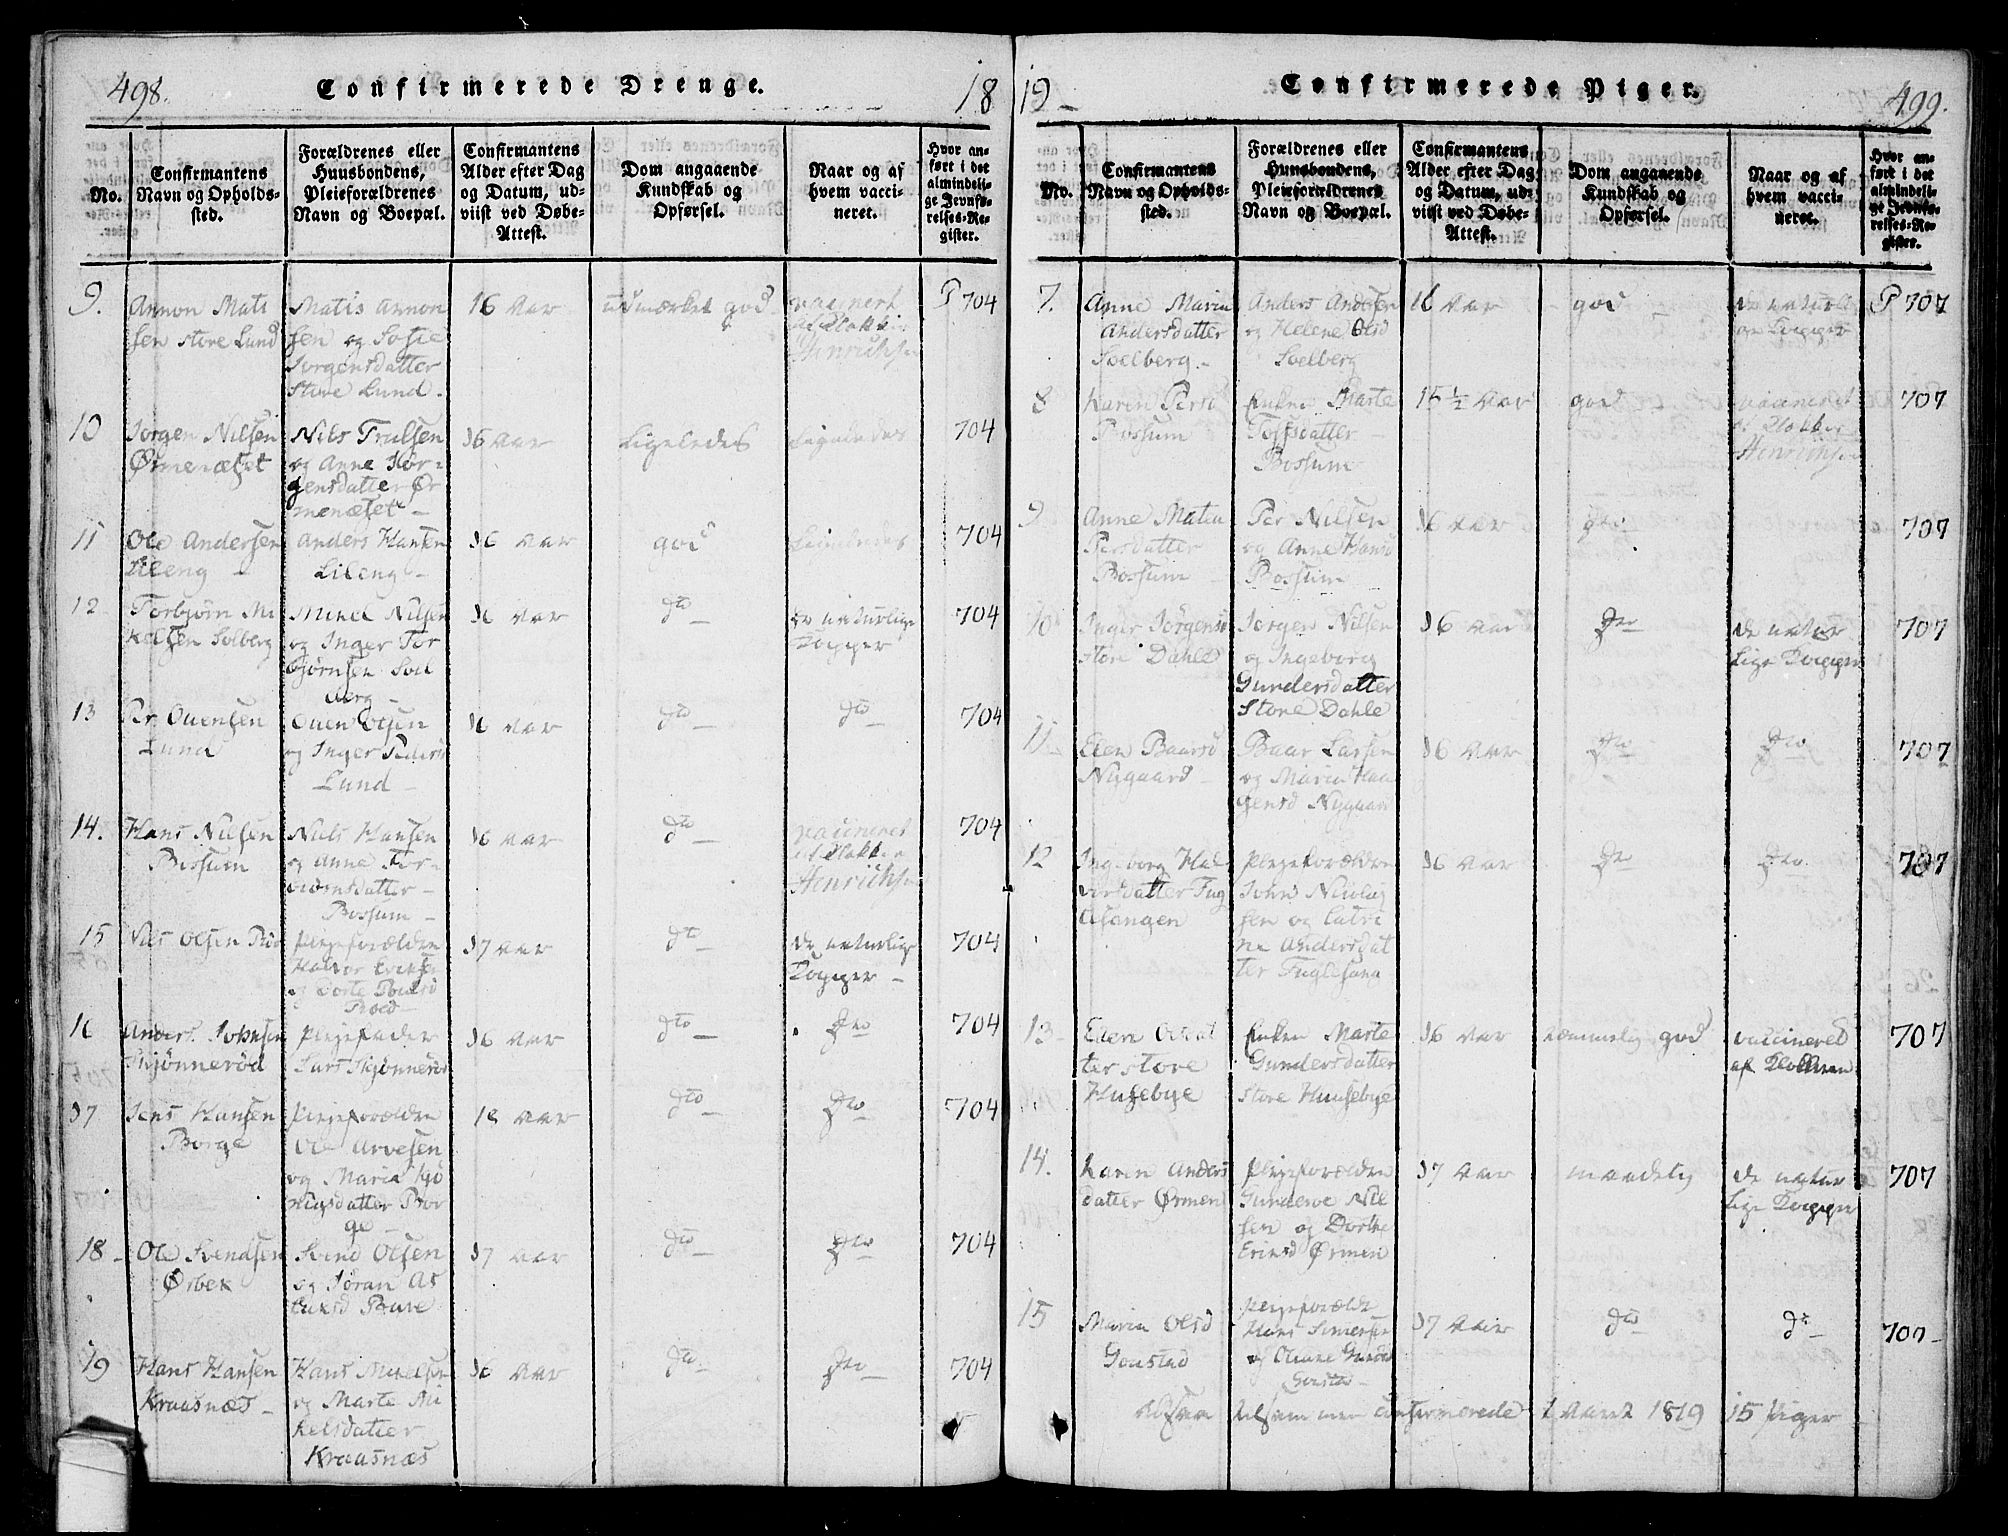 498.
Confirmerede Drenge.
18
No.
Confirmantens Navn og Opholdssted.
Forældrenes eller Huusbondens, Pleieforældrenes Navn og Boepæl.
Confirmantens Alder efter Dag og Datum, udviist ved Døbe-Attest.
Dom angaaende Kundskab og Opførsel.
Naar og af hvem vaccineret.
Hvor anført i det almindelige Jevnførelses-Register.
9.
Annon Mati
sen store Lund
Matis Annon
sen og Sofie
Jorgensdatter
Store Lund.
16 Aar
udmærket god
vaccinert
af Klokker
Henrichsen
P 704
10
Jorgen Nilsen
Ørmenæset
Nils Trulsen
og Anne Jør=
gensdatter Ør
menæset -
16 Aar
Ligeledes
Ligeledes
704
11
Ole Andersen
Lileng -
Anders Hansen
Lileng -
16 Aar
god
Ligeledes
704
12
Torbjørn Mi
kelsen Solberg
Mikel Nilsen
og Inger Tor
bjørnsen Sol
berg -
16 Aar
dto
de naturlige
Kopper
704
13
Per Ouensen
Lund
Ouen Olsen
og Inger Peders
Lund -
16 Aar
dto
dto
704
14.
Hans Nilsen
Bossum
Niels Hansen
og Anne Tor-
datter -
Bossum -
16 Aar
dto
vaccineret
af Klokker
Henrichsen
704
15
Nils Olsen
Plejeforældre
Halvor Eriksen
og Dorte
17 Aar
dto
de naturlige
Kopper -
704
16
Anders Johnsen
Skjønnerød
Plejefader
Lars Skjønnerød
16 Aar
dto
dto
704
17
Jens Hansen
Borge
Plejeforældre
Ole Arvesen
og Maria
datter Bor
ge -
18 Aar
dto
dto
704
18 -
Ole Svendsen
Ørbek
Svend Olsen
og Joran As
17 Aar
dto
dto
704
19
Hans Hansen
Kraasnæs -
Hans Mikelsen
og Marte Mi
kelsdatter
Kraasnæs
16 Aar
dto
dto
704
19 -
Confirmerede Piger.
499.
No.
Confirmantens Navn og Opholdssted.
Forældrenes eller Huusbondens, Pleieforældrenes Navn og Boepæl.
Confirmantens Alder efter Dag og Datum, udviist ved Døbe-Attest.
Dom angaaende Kundskab og Opførsel.
Naar og af hvem vaccineret.
Hvor anført i det almindelige Jevnførelses-Register.
7.
Anne Maria
Andersdatter
Soelberg -
Anders Andersen
og Helene Olsd
Soelberg
16 Aar
god
de naturli
ge Kopper
P 707
8
Karen Persd
Bossum
Enken Marte
Bossum
15 ½ Aar
god
vaccineret
af Klokker
Henrichsen
707
9
Anne Matea
Persdatter
Bossum
Per Nilsen
og Anne Hansd
Bossum
16 Aar
dto
707
10
Inger Jörgensd
store Dahle
Jorgen Nilsen
og Ingeborg
Gundersdatter
Store Dahle
16 Aar
dto
de natur
lige Kopper
707
11
Elen Baarsd
Nygaard -
Baar Larsen
og Maria Haa
gensd Nygaard
16 Aar
dto
dto
707
12
Ingeborg Hal
vorsdatter Fug
lesangen
Plejeforældre
John Nicolaj
sen og Catri
ne Andersdat
ter Fuglesang
16 Aar
dto
dto
707
13
Elen Olsdat
ter store
Husebye
Enken Marte
Gundersdatter
Store Huusebye
16 Aar
temmelig god
vaccineret
af Klokkeren
707
14.
Karen Anders
datter Ørmen
Plejeforældre
Gunderoe Nil
sen og Dorthe
Eriksd Ørmen
17 Aar
maadelig
de natur
lige Kopper
707
15
Maria Olsd
Gonstad
Plejeforældre
Hans Simensen
17 Aar
dto
dto
707 -
Altsaa tilsammen confirmerede i Aaret 1819 15 Piger